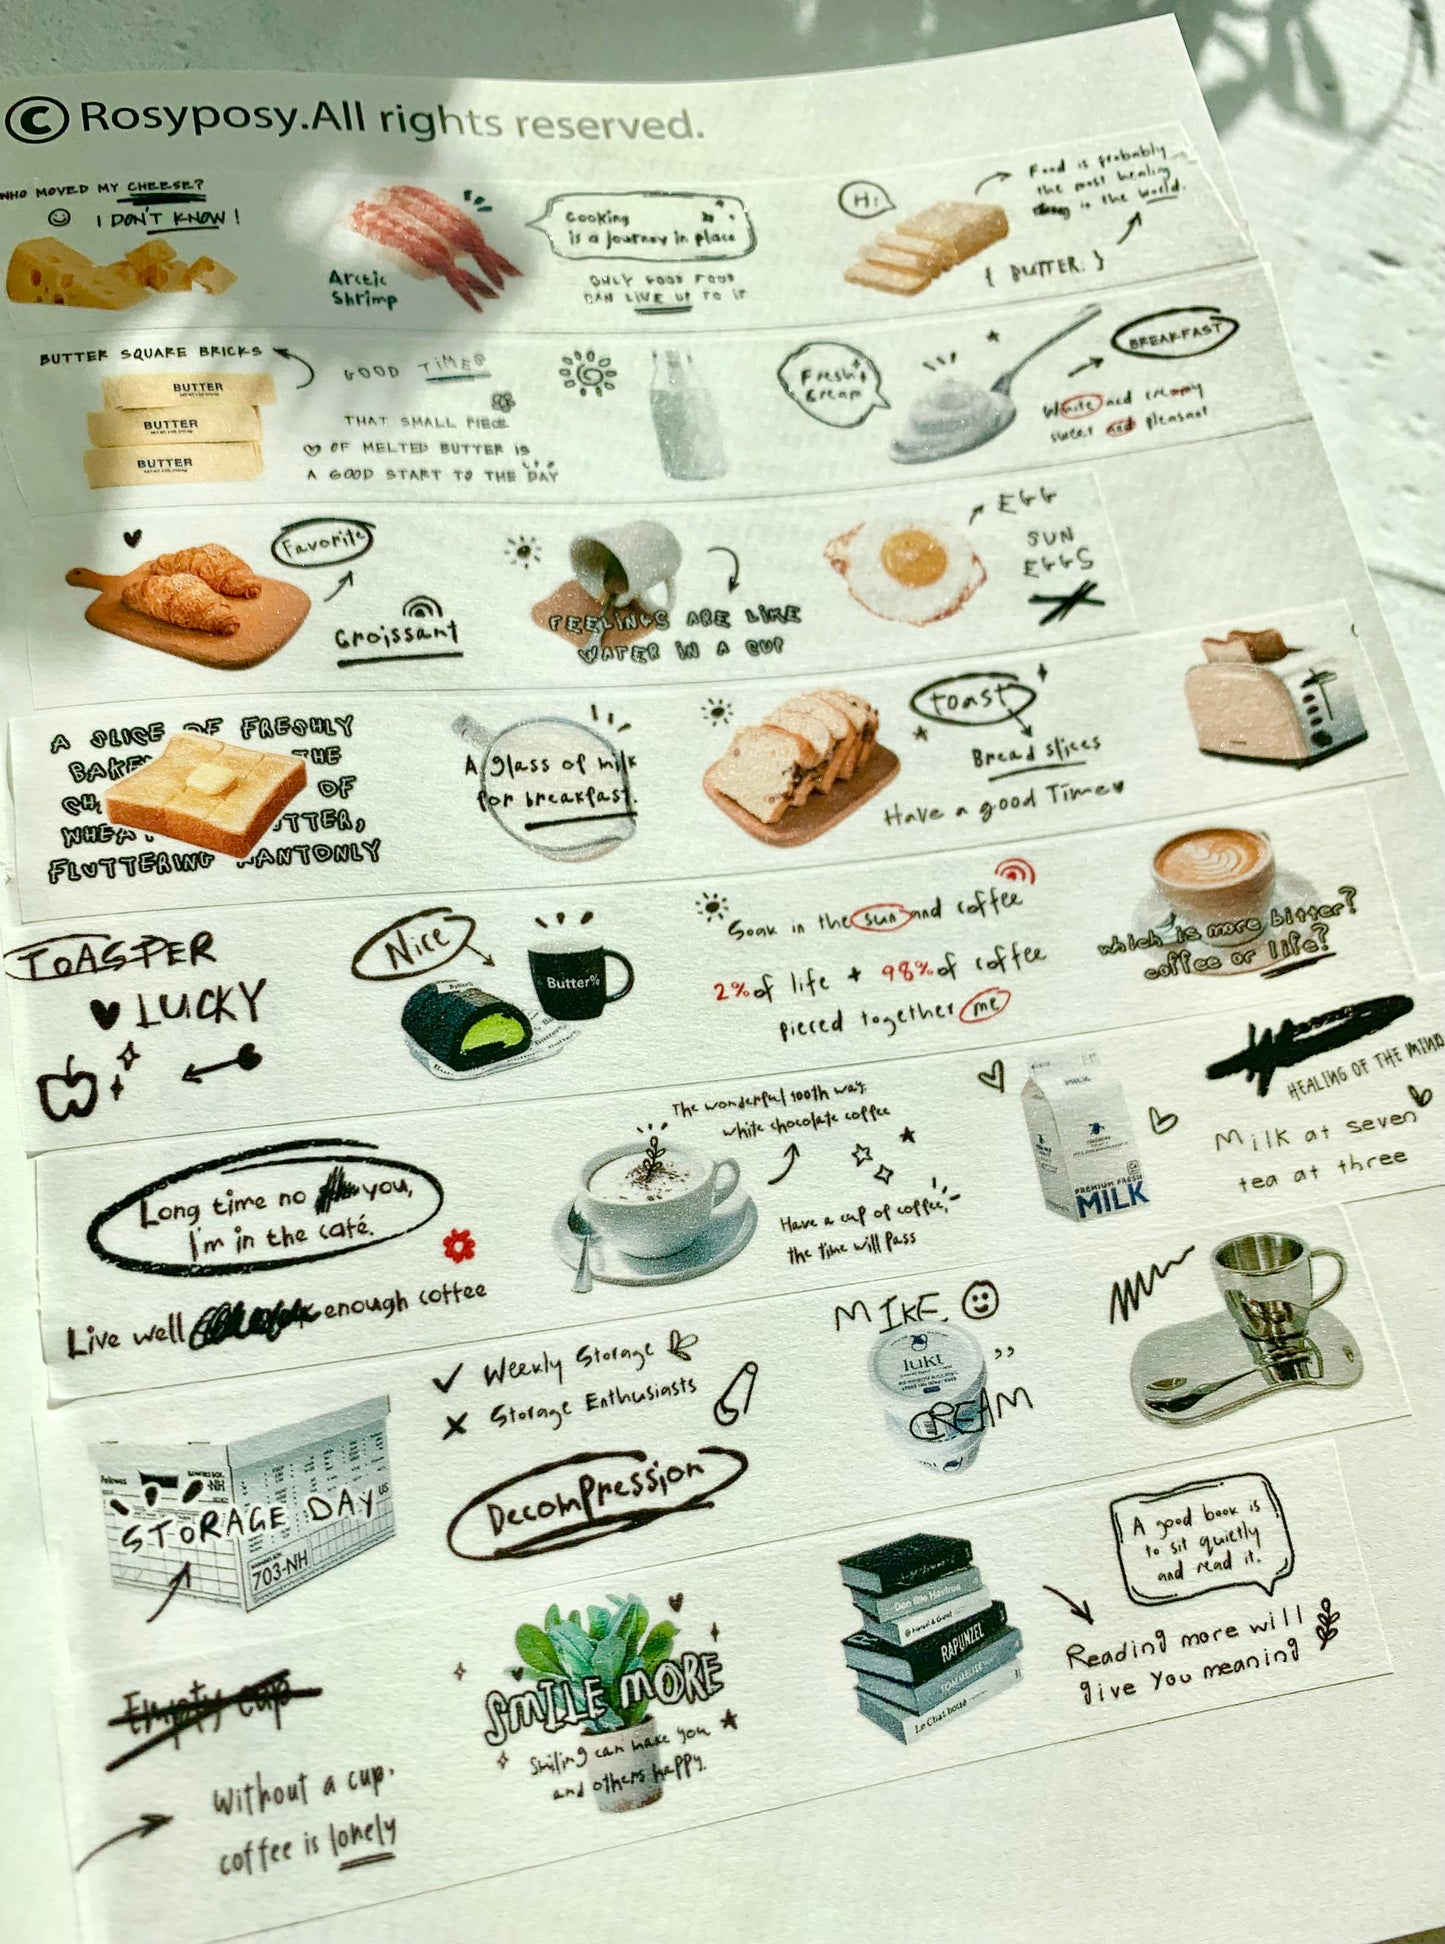 © Rosyposy.All rights reserved.
WHO MOVED MY CHEESE?
I DON'T KNOW!
Arctic
Shrimp
Cooking
is a journey in place
ONLY GOOD FOOD
CAN LIVE UP TO IT
Hi
Food is probably
the most healing
thing in the world.
{ BUTTER. }
BUTTER SQUARE BRICKS
BUTTER
BUTTER
BUTTER
GOOD TIMES
THAT SMALL PIECE
OF MELTED BUTTER IS
A GOOD START TO THE DAY
Fresh
cream
BREAKFAST
White and creamy
sweet and pleasant
Favorite
croissant
FEELINGS ARE LIKE
WATER IN A CUP
EGG
SUN
EGGS
A SLICE OF FRESHLY
BAKE THE
CH OF
WHEA TTER,
FLUTTERING WANTONLY
A glass of milk
for breakfast.
toast
Bread slices
Have a good Time
TOASPER
LUCKY
Nice
Butter%
Soak in the sun and coffee
2% of life + 98% of coffee
pieced together me
which is more bitter?
coffee or life?
Long time no you,
I'm in the café.
Live well enough coffee
The wonderful 100th way:
white chocolate coffee
Have a cup of coffee,
the time will pass
PREMIUM FRESH
MILK
HEALING OF THE MIND
Milk at seven
tea at three
Weekly Storage
Storage Enthusiasts
Decompression
Fellowes
STORAGE DAY
703-NH
MIKE
lukt
CREAM
Empty cup
Without a cup.
coffee is lonely
SMILE MORE
Smiling can make you
and others happy.
RAPUNZEL
Le Chat botté
A good book is
to sit quietly
and read it.
Reading more will
give you meaning